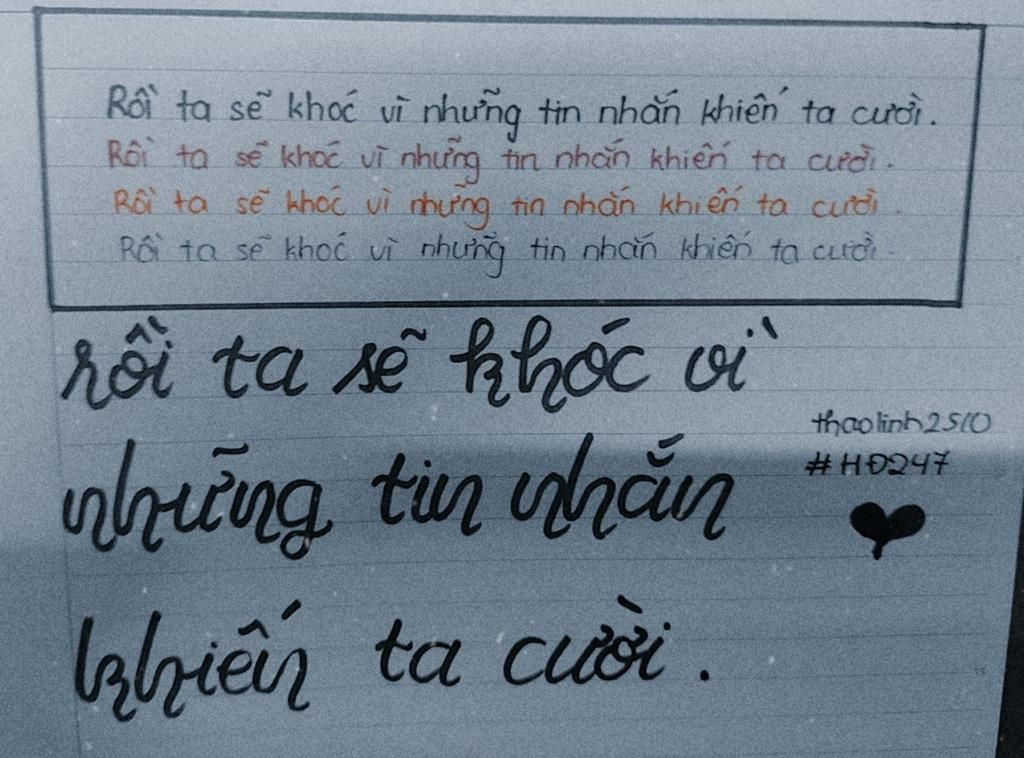 Rồi ta sẽ khóc vì những tin nhắn khiến ta cười.
Rồi ta sẽ khóc vì những tin nhắn khiến ta cười.
Rồi ta sẽ khóc vì những tin nhắn khiến ta cười.
Rồi ta sẽ khóc vì những tin nhắn khiến ta cười.
rồi ta sẽ khóc vì
những tin nhắn
khiến ta cười.
thaolinh2510
#HĐ247